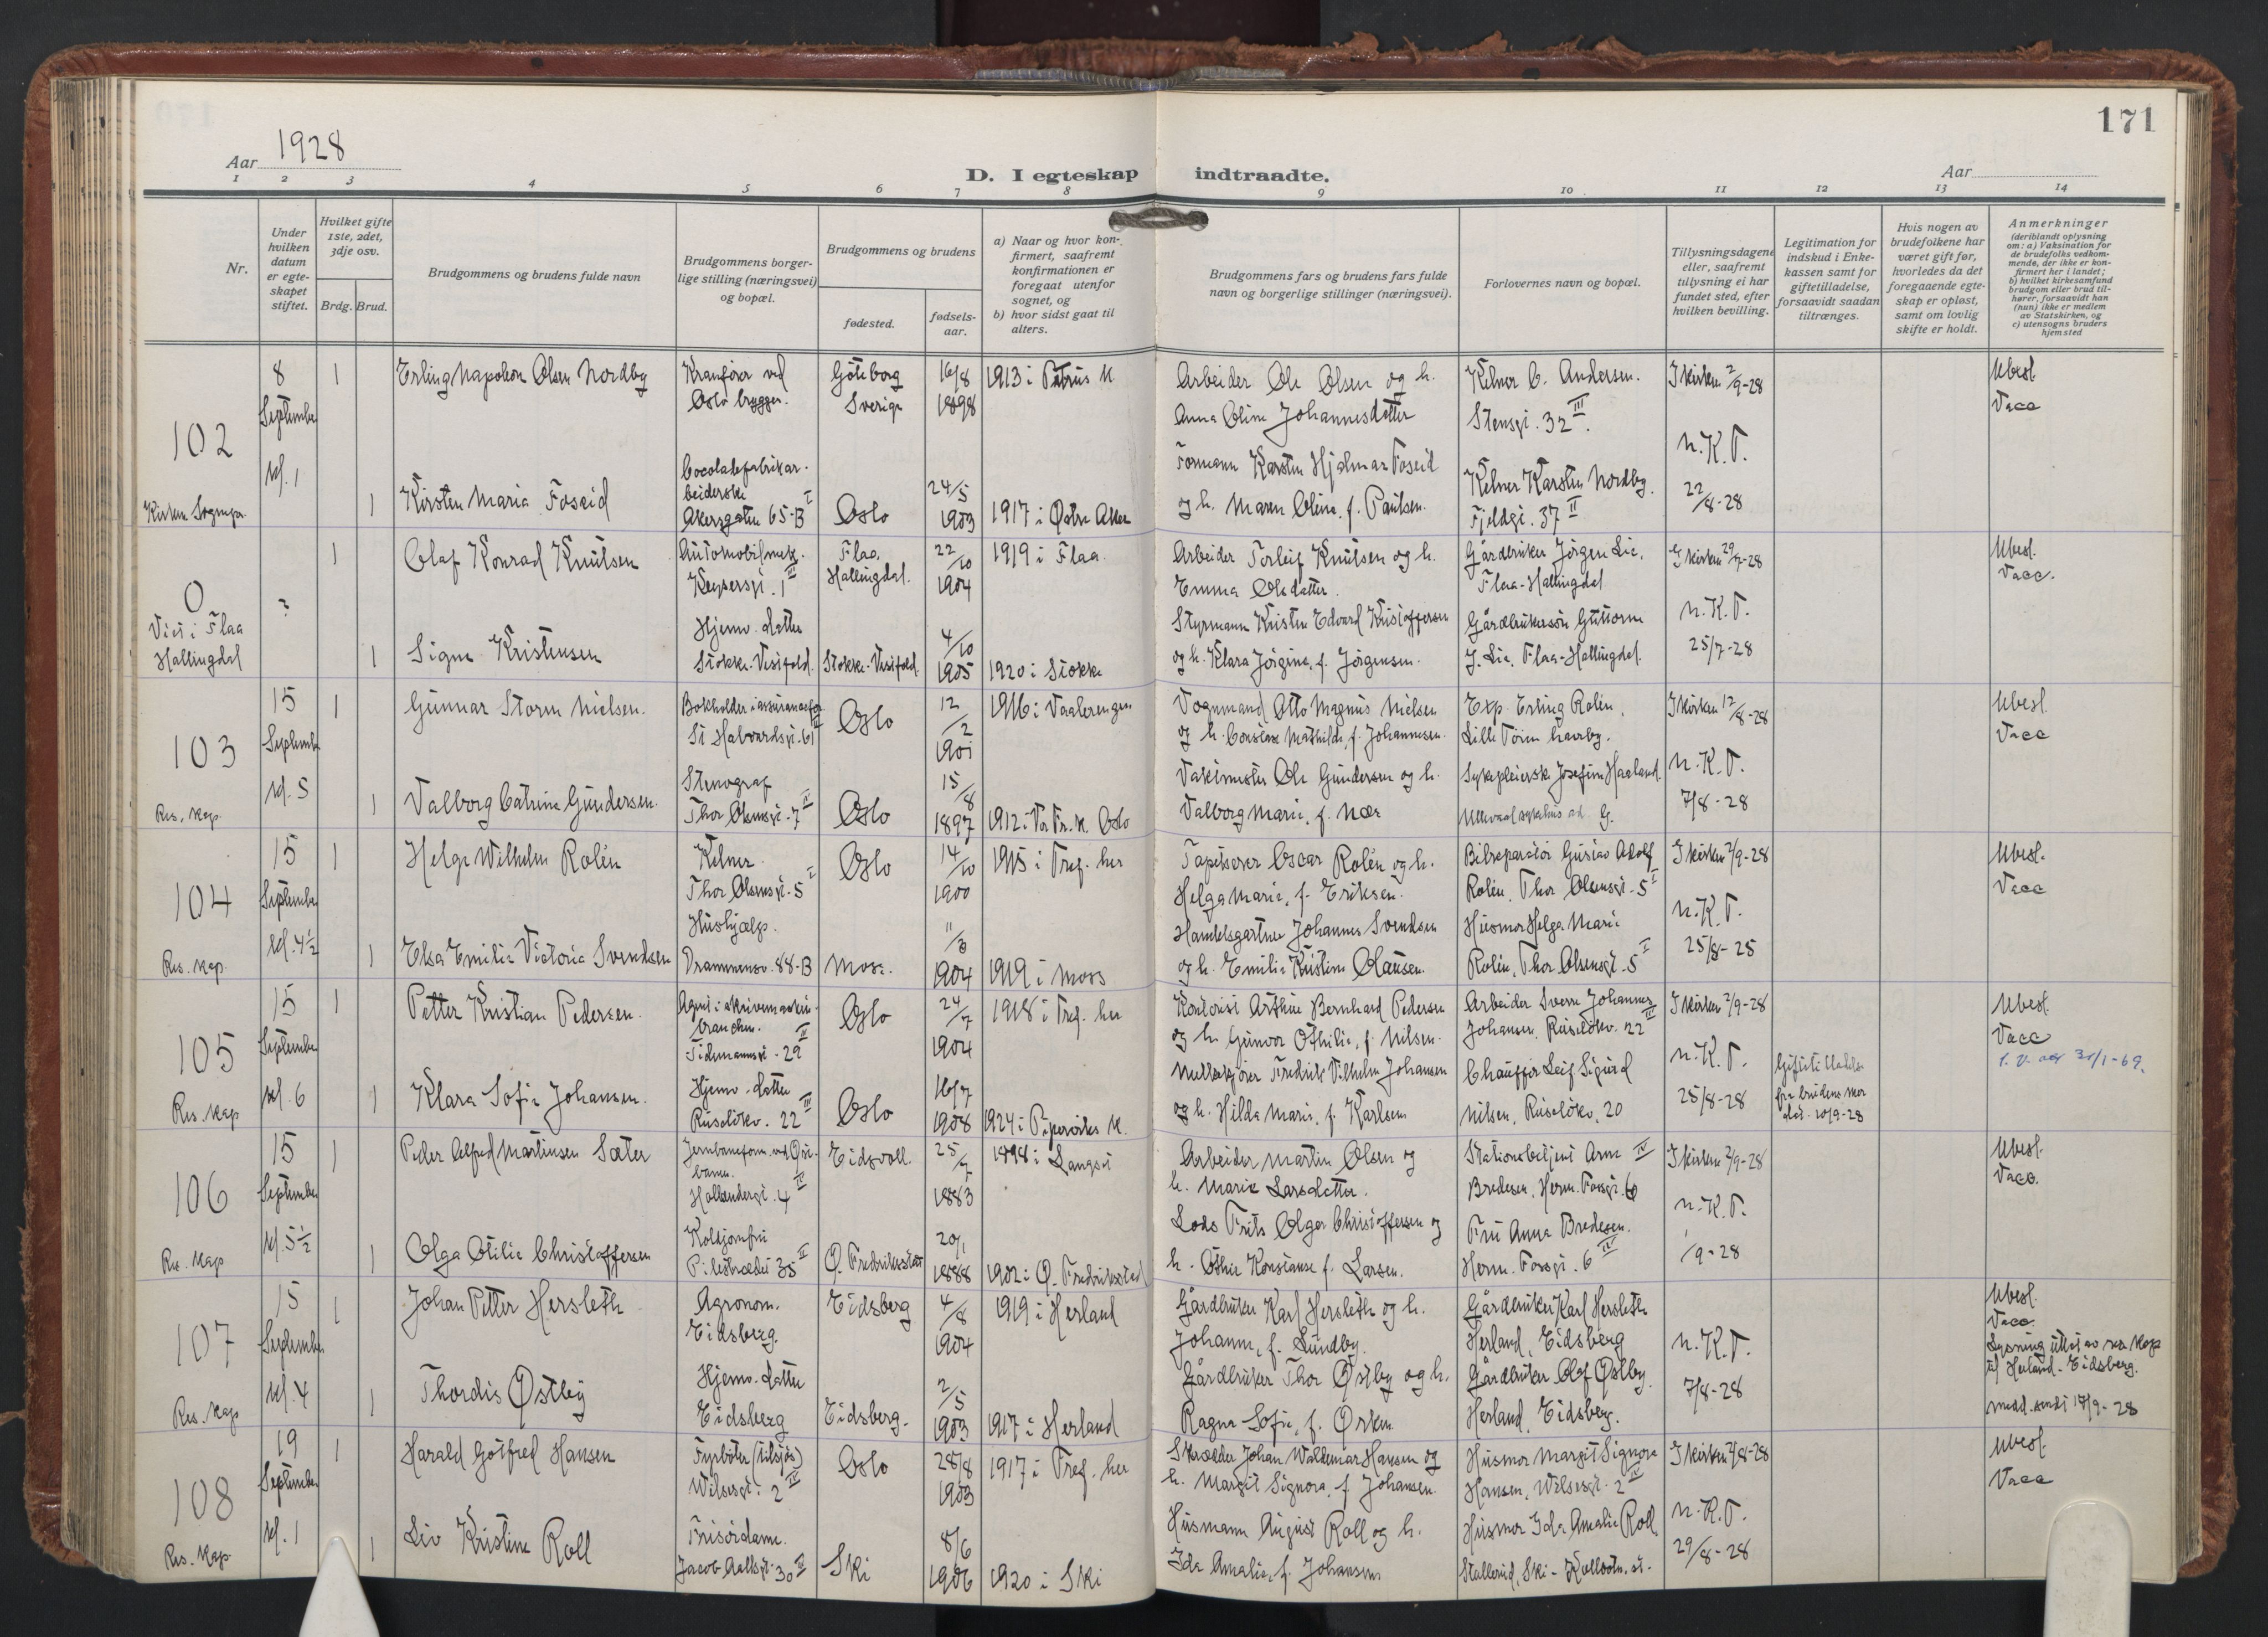 171
Aar 1928
D. I egteskap indtraadte.
Aar
1 2 3 4 5 6 7 8 9 10 11 12 13 14
Nr.
Under hvilken datum er egte-skapet stiftet.
Hvilket gifte 1ste, 2det, 3dje osv.
Brdg. Brud.
Brudgommens og brudens fulde navn
Brudgommens borger-lige stilling (næringsvei) og bopæl.
Brudgommens og brudens
fødested.
fødsels-aar.
a) Naar og hvor kon-firmert, saafremt konfirmationen er foregaat utenfor sognet, og
b) hvor sidst gaat til alters.
Brudgommens fars og brudens fars fulde navn og borgerlige stillinger (næringsvei).
Forlovernes navn og bopæl.
Tillysningsdagene eller, saafremt tillysning ei har fundet sted, efter hvilken bevilling.
Legitimation for indskud i Enke-kassen samt for giftetilladelse, forsaavidt saadan tiltrænges.
Hvis nogen av brudefolkene har været gift før, hvorledes da det foregaaende egte-skap er opløst, samt om lovlig skifte er holdt.
Anmerkninger (deriblandt oplysning om: a) Vaksination for de brudefolks vedkom-mende, der ikke er kon-firmert her i landet; b) hvilket kirkesamfund brudgom eller brud til-hører, forsaavidt han (hun) ikke er medlem av Statskirken, og c) utensogns bruders hjemsted
102
8 September kl. 1
1 Erling Napoleon Olsen Nordby
Kranfører ved Oslo brygger.
Göteborg Sverige
16/8 1898
1913 i Petrus K
Arbeider Ole Olsen og h. Anna Oline Johannesdatter
Kelner C. Andersen. Stensgt. 32 III.
I kirken 2/9-28
Ubesl. Vacc
1 Kirsten Maria Foseid
Akersgaten 65-B I
Oslo
24/5 1903
1917 i Østre Aker
Formann Karsten Hjalmar Foseid og h. Maren Oline, f. Paulsen.
Kelner Karsten Nordby. Fjeldgt. 37 II
N.K.T. 22/8-28
0
Viet i Flaa Hallingdal
?
1 Olaf Konrad Knutsen
Automobilmek. Keysersgt. 1 III
Flaa Hallingdal.
22/10 1904
1919 i Flaa.
Arbeider Torleif Knutsen og h. Emma Olsdatter.
Gårdbruker Jörgen Lie, Flaa-Hallingdal
I kirken 29/7-28
Ubesl. Vacc.
1 Signe Kristensen
Hjemv. datter Stokke-Vestfold.
Stokke-Vestfold
4/10 1905
1920 i Stokke
Styrmann Kristen Edvard Kristoffersen og h. Klara Jörgine, f. Jörgensen.
Gårdbrukersön Guttorm J. Lie, Flaa-Hallingdal.
N.K.T. 25/7-28
103
Res. Kap.
15 September kl. 5
1 Gunnar Storm Nielsen.
St. Halvardsgt. 61 II
Oslo
12/2 1901
1916 i Vaalerengen
Vognmand Otto Magnus Nielsen og h. Constanse Mathilde, f. Johannesen.
Exp. Erling Rolén,
I kirken 12/8-28
Ubesl. Vacc
1 Valborg Catrine Gundersen.
Stenograf Thor Olsensgt. 7 II
Oslo
15/8 1897
1912 i Vor Fr. K. Oslo
Vaktmester Ole Gundersen og h. Valborg Marie, f. Nær
Sykepleierske Josefine Haaland. Ullevaal sykehus
N.K.T. 7/8-28
104
Res. Kap.
15 September kl. 4 1/2
1 Helge Wilhelm Rolén
Kelner. Thor Olsensgt. 5 I
Oslo
14/10 1900
1915 i Tref. her
Tapetserer Oscar Rolén og h. Helga Marie, f. Eriksen.
Bilreparatör Gustav Adolf Rolén, Thor Olsensgt. 5 I
I kirken 2/9-28
Ubesl. Vacc
1 Elsa Emilie Victoria Svendsen
Hushjælp. Drammensv. 88-B
Moss.
11/3 1904
1919 i Moss
Handelsgartner Johannes Svendsen og h. Emilie Kristine Olausen.
Husmor Helga Marie Rolén, Thor Olsensgt. 5 I
N.K.T. 25/8-28
105
Res. Kap
15 September kl. 6
1 Petter Kristian Pedersen.
Agent i skrivemaskin-branchen. Tidemannsgt. 29 II
Oslo
24/7 1904
1918 i Tref. her
Kontorist Arthur Bernhard Pedersen og h. Gunvor Othilie, f. Nilsen.
Arbeider Sverre Johannes Johansen, Ruselökv. 22 III
I kirken 2/9-28
Ubesl. Vacc
31/1-69.
1 Klara Sofie Johansen.
Hjemv. datter Ruselökv. 22 III
Oslo
16/7 1908
1924 i Pipervikens K.
Melkekjører Fredrik Vilhelm Johansen og h. Hilda Marie, f. Karlsen
Chauffør Leif Sigurd Nilsen, Ruselökv. 20
N.K.T. 25/8-28
Giftetilladelse fra brudens mor dat. 10/9-28
106
Res. Kap
15 September kl. 5 1/2
1 Peder Alfred Martinsen Sæter
Hollendergt. 4 IV
Eidsvoll.
25/7 1883
1898 i Langset
Arbeider Martin Olsen og h. Marie Larsdatter.
Stationsbetjent Arne Bredesen, Herm. Fossgt. 6 IV
I kirken 2/9-28
Ubesl. Vacc.
1 Olga Otilie Christoffersen
Koldjomfru Pilestrædet 35 II
Ø. Fredrikstad
20/1 1888
1902 i Ø. Fredrikstad
Lods Frits Olger Christoffersen og h. Othie Konstanse f. Larsen.
Fru Anna Bredesen. Herm. Fossgt. 6 IV
N.K.T. 1/9-28
107
Res. Kap
15 September kl. 4
1 Johan Petter Hersleth
Agronom. Eidsberg.
Eidsberg
4/8 1904
1919 i Herland
Gårdbruker Karl Hersleth og h. Johanne, f. Lundby.
Gårdbruker Karl Hersleth Herland, Eidsberg
Ubesl. Vacc.
Lysning uttat av res. kap til Herland-Eidsberg.
medd. sendt 17/9-28
1 Thordis Østby
Hjemv. datter Eidsberg
Eidsberg.
2/5 1903
1917 i Herland
Gårdbruker Thor Østby og h. Ragna Sofie, f. Ørken.
Gårdbruker Olaf Østby. Herland, Eidsberg.
N.K.T. 7/8-28
108
Res. Kap.
19 September kl. 1
1 Harald Gotfred Hansen
Fyrbøter (tilsjøs) Wilsesgt. 2 IV
Oslo
28/8 1903
1917 i Tref. her
Skredder Johan Waldemar Hansen og h. Margit Signora, f. Johansen.
Husmor Margit Signora Hansen, Wilsesgt. 2 IV
I kirken 2/8-28
Ubesl. Vacc
1 Liv Kristine Roll
Frisördame. Jacob Aallsgt. 30 II
Ski
8/6 1906
1920 i Ski
Husmann August Roll og h. Ida Amalie, f. Johansen
Husmor Ida Amalie Roll. Ski - Kolbotn. st.
N.K.T. 29/8-28